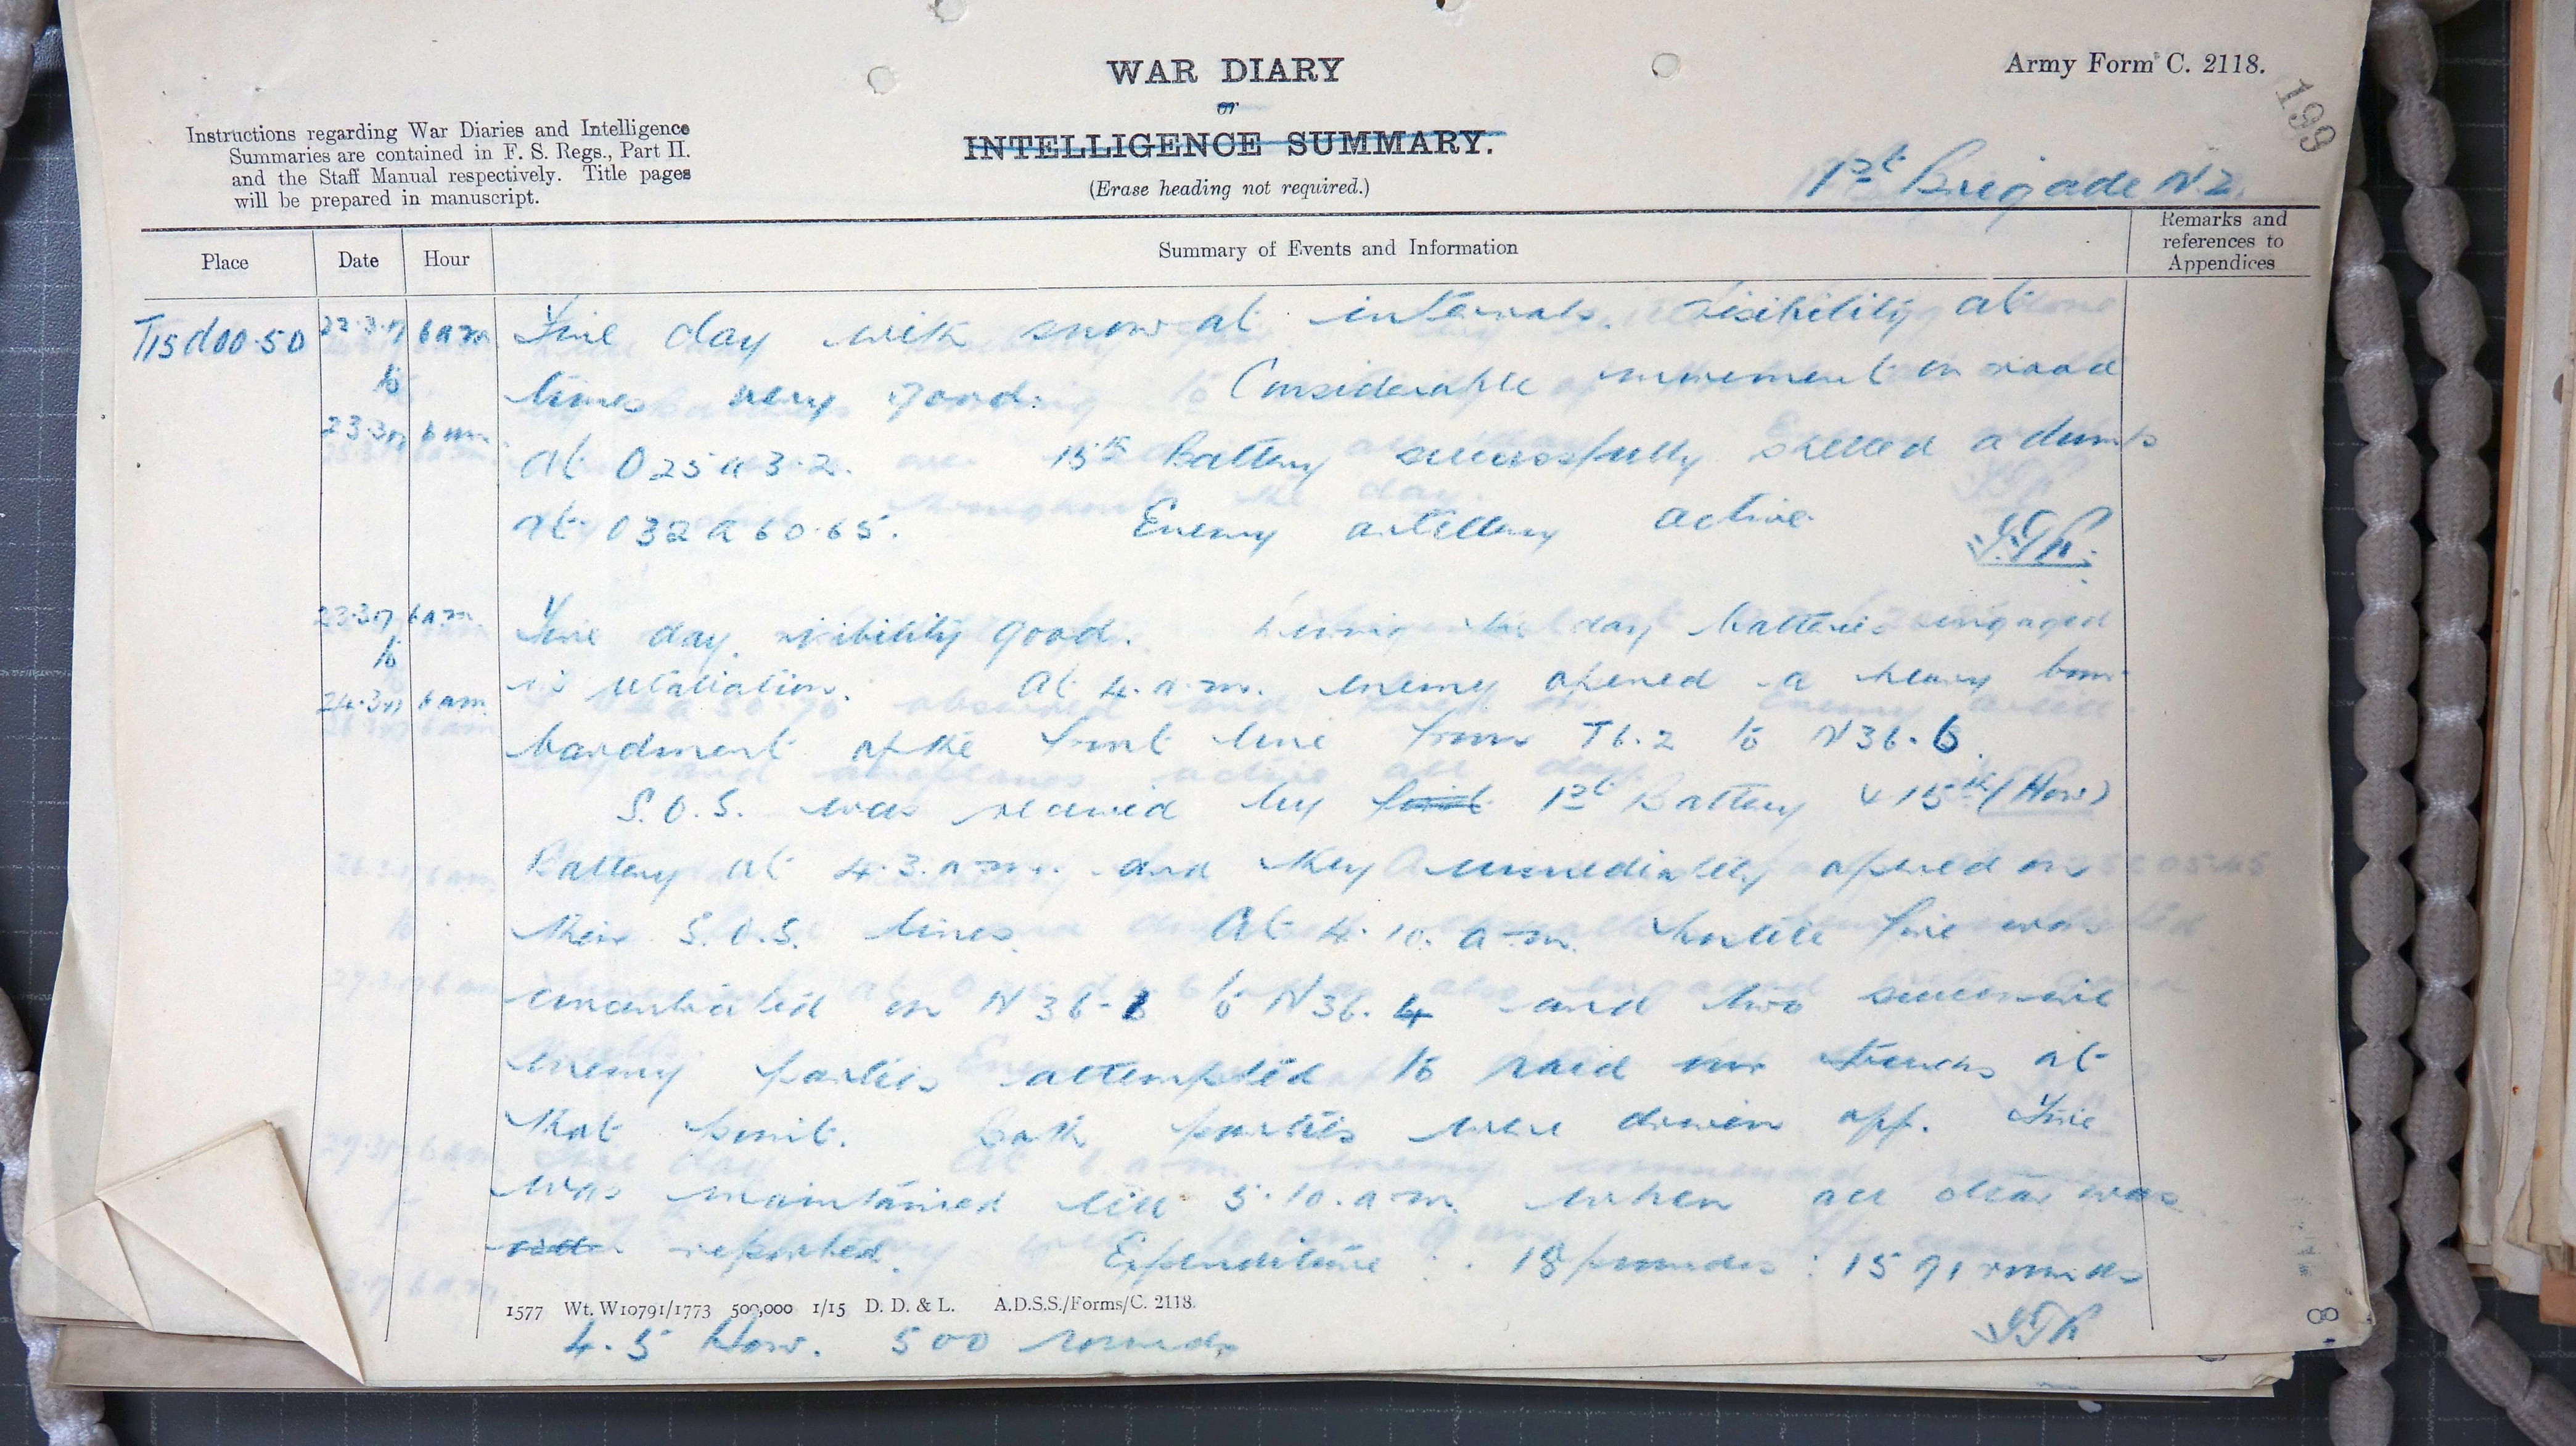 WAR DIARY
or
INTELLIGENCE SUMMARY.
(Erase heading not required.)
Army Form C. 2118.
199
Instructions regarding War Diaries and Intelligence
Summaries are contained in F. S. Regs., Part II.
and the Staff Manual respectively. Title pages
will be prepared in manuscript.
1st Brigade N.Z.
Place Date Hour Summary of Events and Information Remarks and references to Appendices
T15d00.50 22.3.17 6 am Fine day with snow at intervals. Visibility at
to times very good. Considerable movement on road
23.3.17 6 am. at O25a3.2. 15th Battery successfully shelled a dump
at O32a60.65. Enemy artillery active.
23.3.17 6 a.m. Fine day, visibility good. During the day batteries engaged
to in retaliation. At 4. a.m. enemy opened a heavy bom-
24.3.17 6 am. bardment of the front line from T6.2 to N36.6.
S.O.S. was received by 1st Battery & 15th (How)
Battery at 4.3. a.m. and they immediately opened on
their S.O.S. lines. At 4.10. a.m. hostile fire was
concentrated on N36.3 to N36.4 and two successive
enemy parties attempted to raid our trenches at
that point. Both parties were driven off. Fire
was maintained till 5.10. a.m. when all clear was
reported. Expenditure : 18 pounders : 1571 rounds
1577 Wt. W10791/1773 500,000 1/15 D. D. & L. A.D.S.S./Forms/C. 2118.
4.5 How. 500 rounds
8